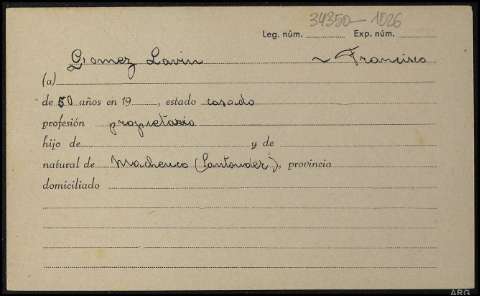 34350-1026
Leg. núm. Exp. núm.
Gomez Lavin ~ Francisco
(a)
de 50 años en 19, estado casado
profesión propietario
hijo de y de
natural de Machenco (Santander), provincia
domiciliado
ARG